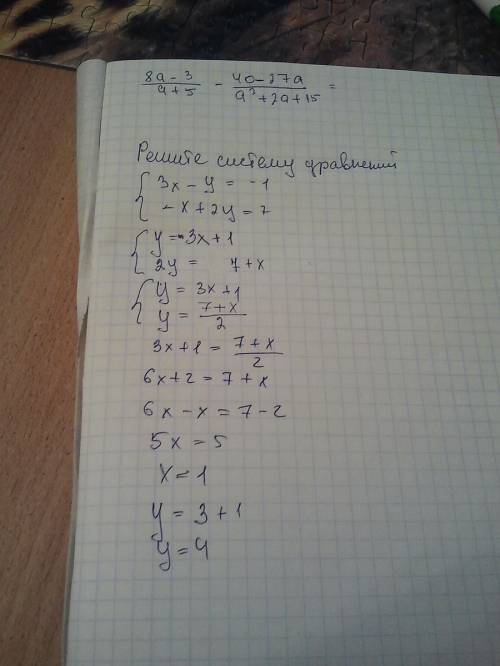 (8a - 3)/(a + 5) - (40 - 27a)/(a² + 2a + 15) =
Решите систему уравнений
{ 3x - y = -1
- x + 2y = 7
{ y = 3x + 1
2y = 7 + x
{ y = 3x + 1
y = (7 + x)/2
3x + 1 = (7 + x)/2
6x + 2 = 7 + x
6x - x = 7 - 2
5x = 5
x = 1
y = 3 + 1
y = 4